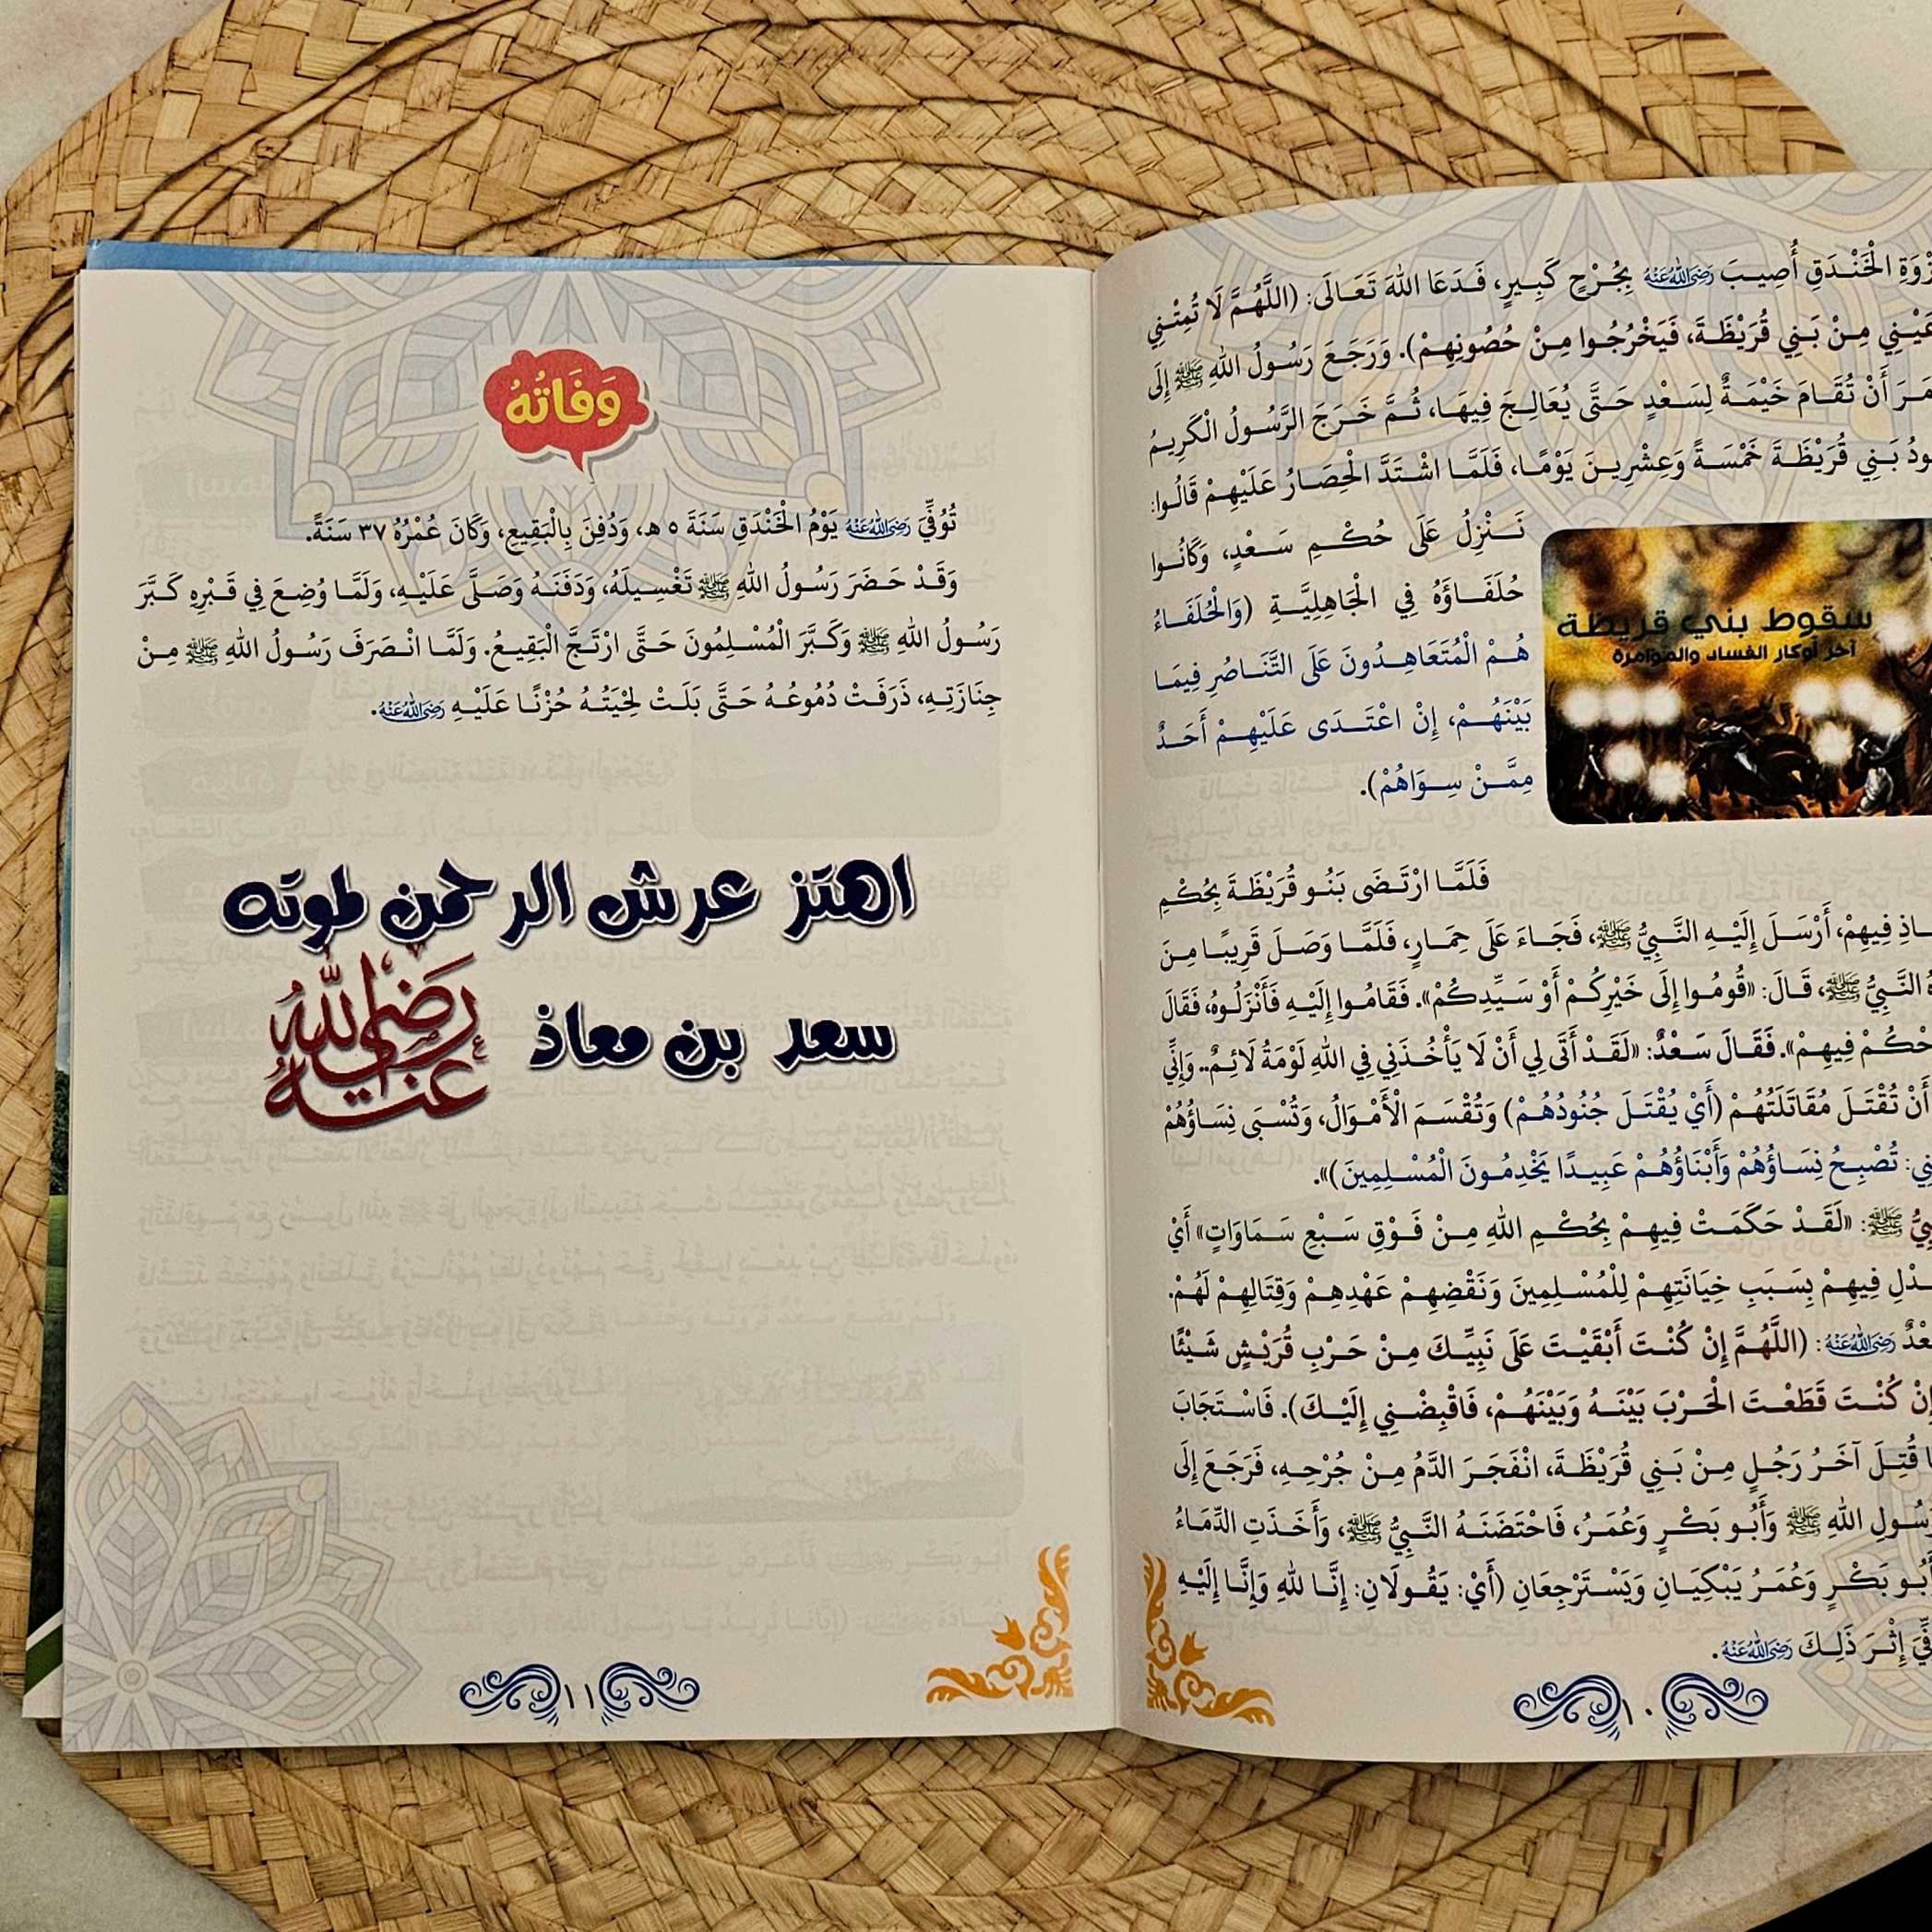 أُصِيبَ رَضِيَ اللهُ عَنْهُ بِجُرْحٍ كَبِيرٍ، فَدَعَا اللهَ تَعَالَى: (اللَّهُمَّ لَا تُمِتْنِي
مِنْ بَنِي قُرَيْظَةَ، فَيَخْرُجُوا مِنْ حُصُونِهِمْ). وَرَجَعَ رَسُولُ اللهِ ﷺ إِلَى
أَنْ تُقَامَ خَيْمَةٌ لِسَعْدٍ حَتَّى يُعَالِجَ فِيهَا، ثُمَّ خَرَجَ الرَّسُولُ الْكَرِيمُ
بَنِي قُرَيْظَةَ خَمْسَةً وَعِشْرِينَ يَوْمًا، فَلَمَّا اشْتَدَّ الْحِصَارُ عَلَيْهِمْ قَالُوا:
نَنْزِلُ عَلَى حُكْمِ سَعْدٍ، وَكَانُوا
حُلَفَاؤَهُ فِي الْجَاهِلِيَّةِ (وَالْحُلَفَاءُ
هُمْ الْمُتَعَاهِدُونَ عَلَى التَّنَاصُرِ فِيمَا
بَيْنَهُمْ، إِنْ اعْتَدَى عَلَيْهِمْ أَحَدٌ
مِمَّنْ سِوَاهُمْ).
سقوط بني قريظة
آخر أوكار الفساد والمؤامرة
فَلَمَّا ارْتَضَى بَنُو قُرَيْظَةَ بِحُكْمِ
فِيهِمْ، أَرْسَلَ إِلَيْهِ النَّبِيُّ ﷺ، فَجَاءَ عَلَى حِمَارٍ، فَلَمَّا وَصَلَ قَرِيبًا مِنَ
النَّبِيُّ ﷺ، قَالَ: «قُومُوا إِلَى خَيْرِكُمْ أَوْ سَيِّدِكُمْ». فَقَامُوا إِلَيْهِ فَأَنْزَلُوهُ، فَقَالَ
فِيهِمْ». فَقَالَ سَعْدٌ: «لَقَدْ أَتَى لِي أَنْ لَا يَأْخُذَنِي فِي اللهِ لَوْمَةُ لَائِمٌ.. وَإِنِّي
أَنْ تُقْتَلَ مُقَاتَلَتُهُمْ (أَيْ يُقْتَلَ جُنُودُهُمْ) وَتُقْسَمَ الْأَمْوَالُ، وَتُسْبَى نِسَاؤُهُمْ
تُصْبِحُ نِسَاؤُهُمْ وَأَبْنَاؤُهُمْ عَبِيدًا يَخْدِمُونَ الْمُسْلِمِينَ)».
ﷺ: «لَقَدْ حَكَمَتْ فِيهِمْ بِحُكْمِ اللهِ مِنْ فَوْقِ سَبْعِ سَمَاوَاتٍ» أَيْ
فِيهِمْ بِسَبَبِ خِيَانَتِهِمْ لِلْمُسْلِمِينَ وَنَقْضِهِمْ عَهْدِهِمْ وَقِتَالِهِمْ لَهُمْ.
رَضِيَ اللهُ عَنْهُ: (اللَّهُمَّ إِنْ كُنْتَ أَبْقَيْتَ عَلَى نَبِيِّكَ مِنْ حَرْبِ قُرَيْشٍ شَيْئًا
إِنْ كُنْتَ قَطَعْتَ الْحَرْبَ بَيْنَهُ وَبَيْنَهُمْ، فَاقْبِضْنِي إِلَيْكَ). فَاسْتَجَابَ
قُتِلَ آخَرُ رَجُلٍ مِنْ بَنِي قُرَيْظَةَ، انْفَجَرَ الدَّمُ مِنْ جُرْحِهِ، فَرَجَعَ إِلَى
رَسُولِ اللهِ ﷺ وَأَبُو بَكْرٍ وَعُمَرُ، فَاحْتَضَنَهُ النَّبِيُّ ﷺ، وَأَخَذَتِ الدِّمَاءُ
أَبُو بَكْرٍ وَعُمَرُ يَبْكِيَانِ وَيَسْتَرْجِعَانِ (أَيْ: يَقُولَانِ: إِنَّا لِلهِ وَإِنَّا إِلَيْهِ
إِثْرَ ذَلِكَ رَضِيَ اللهُ عَنْهُ.
١٠
وَفَاتُهُ
تُوُفِّيَ رَضِيَ اللهُ عَنْهُ يَوْمُ الْخَنْدَقِ سَنَةَ ٥ هـ، وَدُفِنَ بِالْبَقِيعِ، وَكَانَ عُمْرُهُ ٣٧ سَنَةً.
وَقَدْ حَضَرَ رَسُولُ اللهِ ﷺ تَغْسِيلَهُ، وَدَفَنَهُ وَصَلَّى عَلَيْهِ، وَلَمَّا وُضِعَ فِي قَبْرِهِ كَبَّرَ
رَسُولُ اللهِ ﷺ وَكَبَّرَ الْمُسْلِمُونَ حَتَّى ارْتَجَّ الْبَقِيعُ. وَلَمَّا انْصَرَفَ رَسُولُ اللهِ ﷺ مِنْ
جِنَازَتِهِ، ذَرَفَتْ دُمُوعُهُ حَتَّى بَلَتْ لِحْيَتُهُ حُزْنًا عَلَيْهِ رَضِيَ اللهُ عَنْهُ.
اهتز عرش الرحمن لموته
سعد بن معاذ رَضِيَ اللهُ عَنْهُ
١١